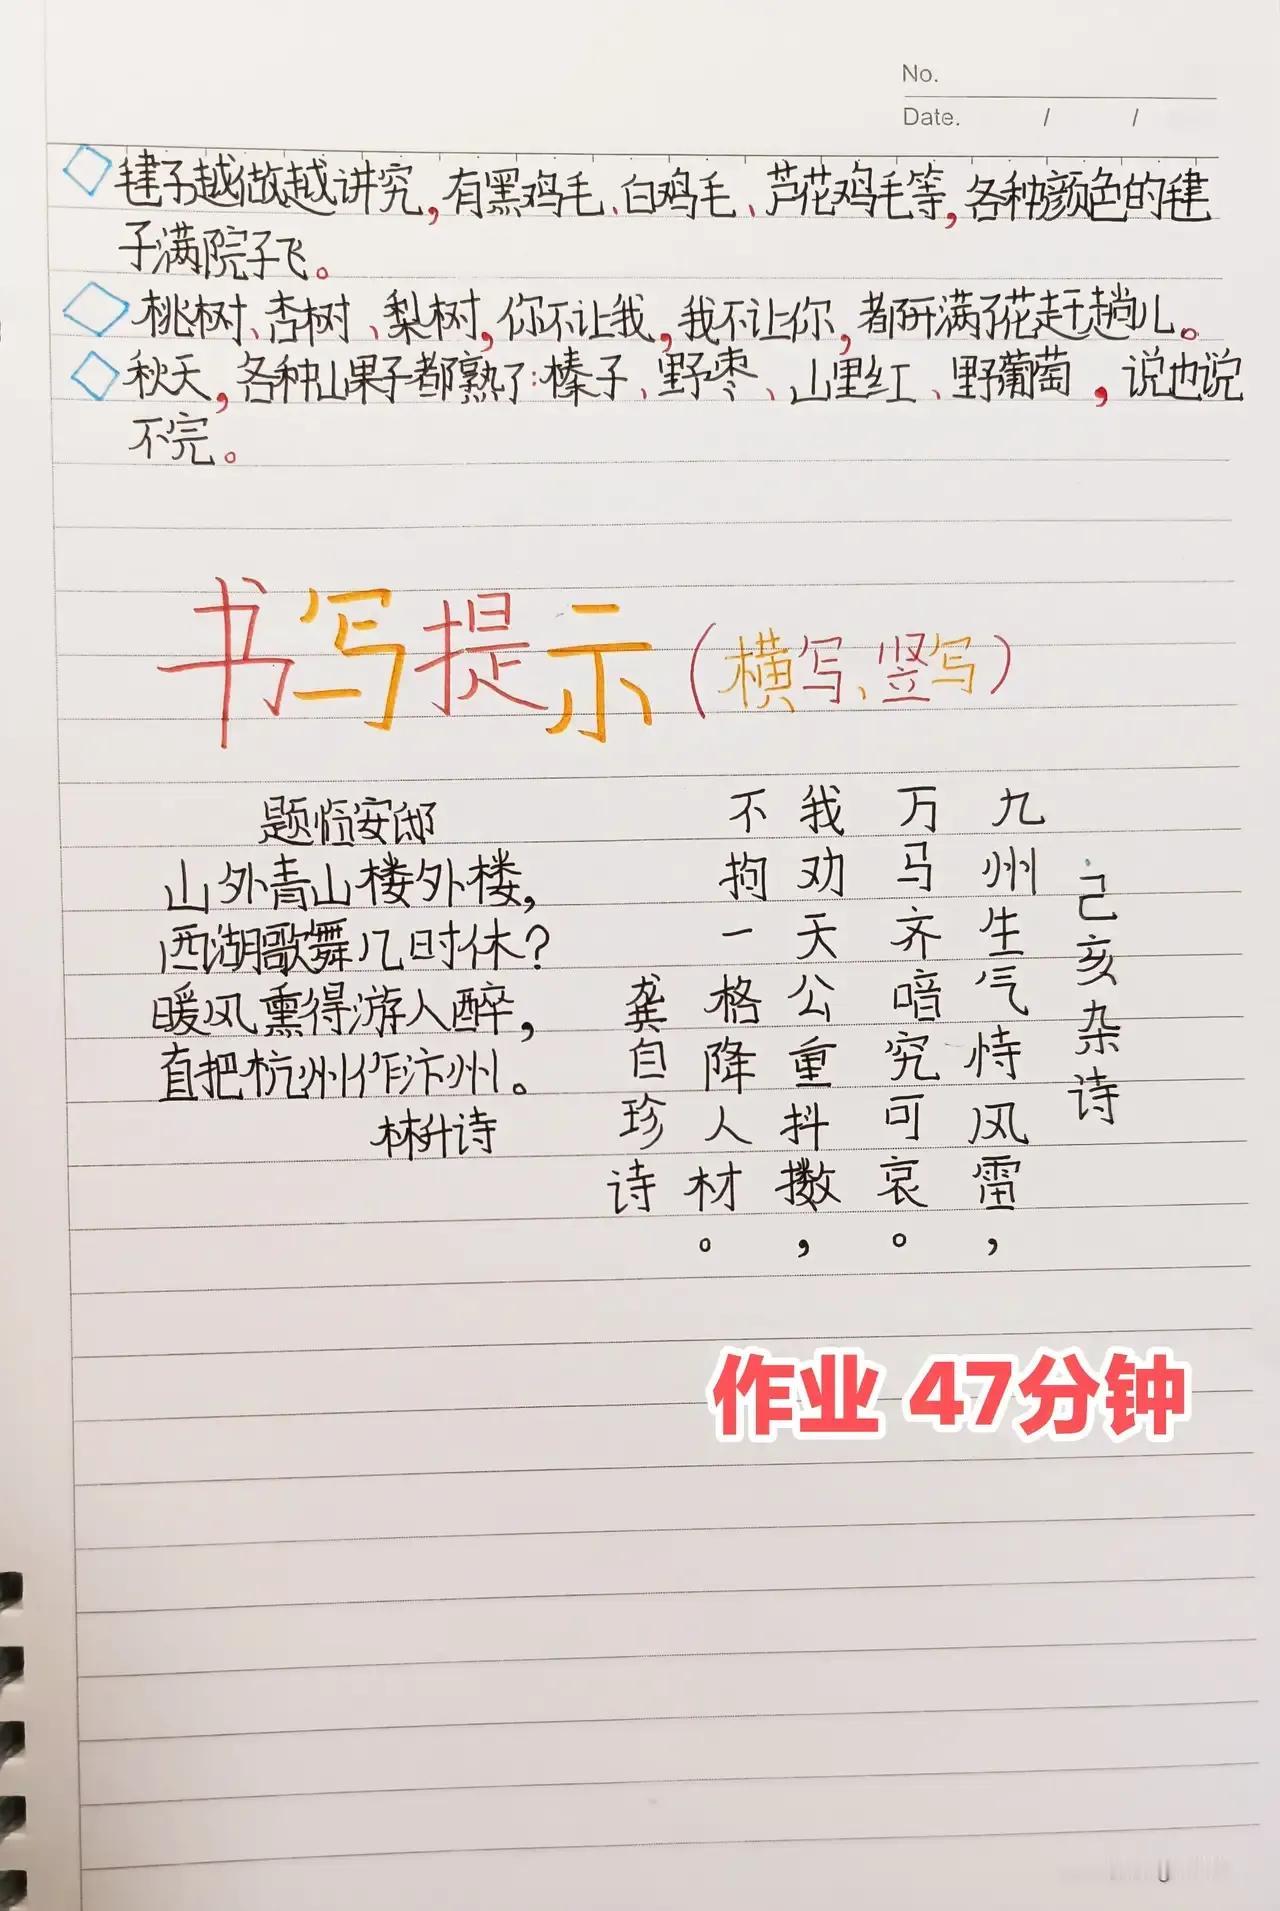 No.
Date. / /
毽子越做越讲究,有黑鸡毛、白鸡毛、芦花鸡毛等,各种颜色的毽
子满院子飞。
桃树、杏树、梨树,你不让我,我不让你,都开满了花赶趟儿。
秋天,各种山果子都熟了:榛子、野枣、山里红、野葡萄,说也说
不完。
书写提示(横写、竖写)
题临安邸
山外青山楼外楼,
西湖歌舞几时休?
暖风熏得游人醉,
直把杭州作汴州。
林升诗
己亥杂诗
九州生气恃风雷,
万马齐喑究可哀。
我劝天公重抖擞,
不拘一格降人材。
龚自珍诗
作业 47分钟